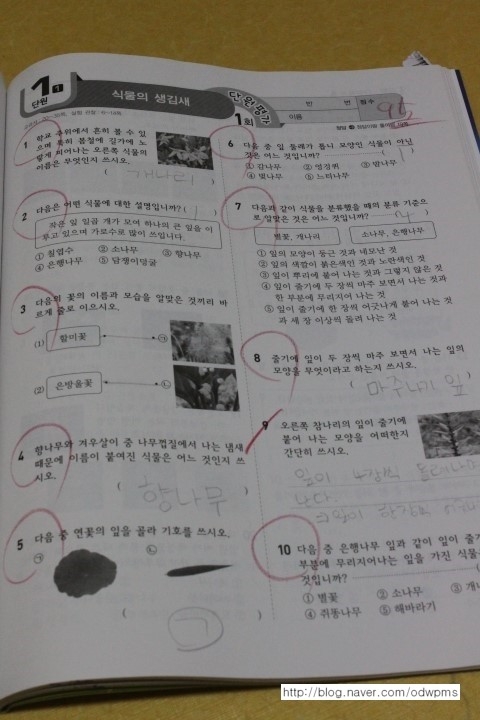 1 1
단원
식물의 생김새
단원평가
1회
반 번 점수
이름
95
1 학교 주위에서 흔히 볼 수 있
으며 특히 봄철에 길가에 노
랗게 피어나는 오른쪽 식물의
이름은 무엇인지 쓰시오.
( 개나리 )
2 다음은 어떤 식물에 대한 설명입니까? ( )
작은 잎 일곱 개가 모여 하나의 큰 잎을 이
루고 있으며 가로수로 많이 쓰입니다.
① 칠엽수 ② 소나무 ③ 향나무
④ 은행나무 ⑤ 담쟁이덩굴
3 다음의 꽃의 이름과 모습을 알맞은 것끼리 바
르게 줄로 이으시오.
(1) 할미꽃 ㉠
(2) 은방울꽃 ㉡
4 향나무와 겨우살이 중 나무껍질에서 나는 냄새
때문에 이름이 붙여진 식물은 어느 것인지 쓰
시오.
( 향나무 )
5 다음 중 연꽃의 잎을 골라 기호를 쓰시오.
㉠ ㉡
( ㄱ )
6 다음 중 잎 둘레가 톱니 모양인 식물이 아닌
것은 어느 것입니까? ( )
① 감나무 ② 엉겅퀴 ③ 밤나무
④ 벚나무 ⑤ 느티나무
7 다음과 같이 식물을 분류했을 때의 분류 기준으
로 알맞은 것은 어느 것입니까? ( 4 )
별꽃, 개나리 소나무, 은행나무
① 잎의 모양이 둥근 것과 네모난 것
② 잎의 색깔이 붉은색인 것과 노란색인 것
③ 잎이 뿌리에 붙어 나는 것과 그렇지 않은 것
④ 잎이 줄기에 두 장씩 마주 보면서 나는 것과
한 부분에 무리지어 나는 것
⑤ 잎이 줄기에 한 장씩 어긋나게 붙어 나는 것
과 세 장 이상씩 돌려 나는 것
8 줄기에 잎이 두 장씩 마주 보면서 나는 잎의
모양을 무엇이라고 하는지 쓰시오.
( 마주나기 잎
9 오른쪽 참나리의 잎이 줄기에
붙어 나는 모양을 어떠한지
간단히 쓰시오.
잎이 4장씩 돌려나
난다.
잎이 한장씩
10 다음 중 은행나무 잎과 같이 잎이 줄기
부분에 무리지어나는 잎을 가진 식물
것입니까?
① 별꽃 ② 소나무 ③ 개나
④ 쥐똥나무 ⑤ 해바라기
http://blog.naver.com/odwpms